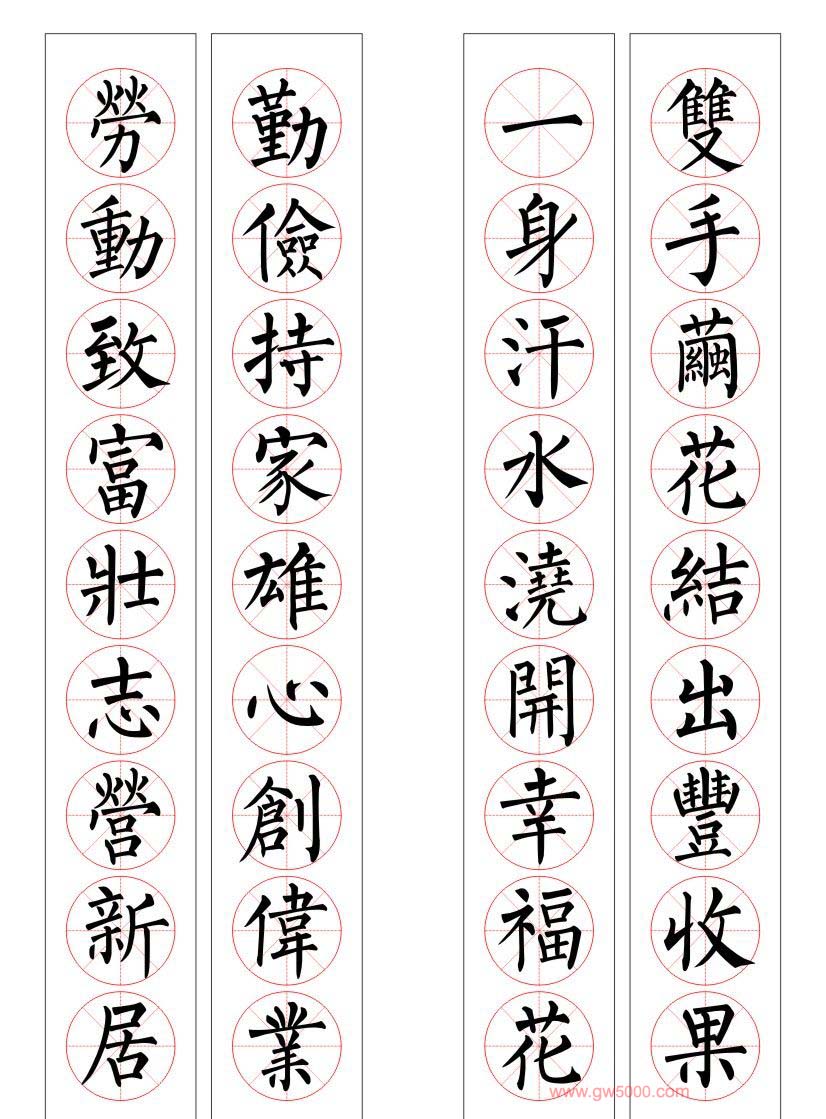 雙手繭花結出豐收果
一身汗水澆開幸福花
勤儉持家雄心創偉業
勞動致富壯志營新居
www.gw5000.com